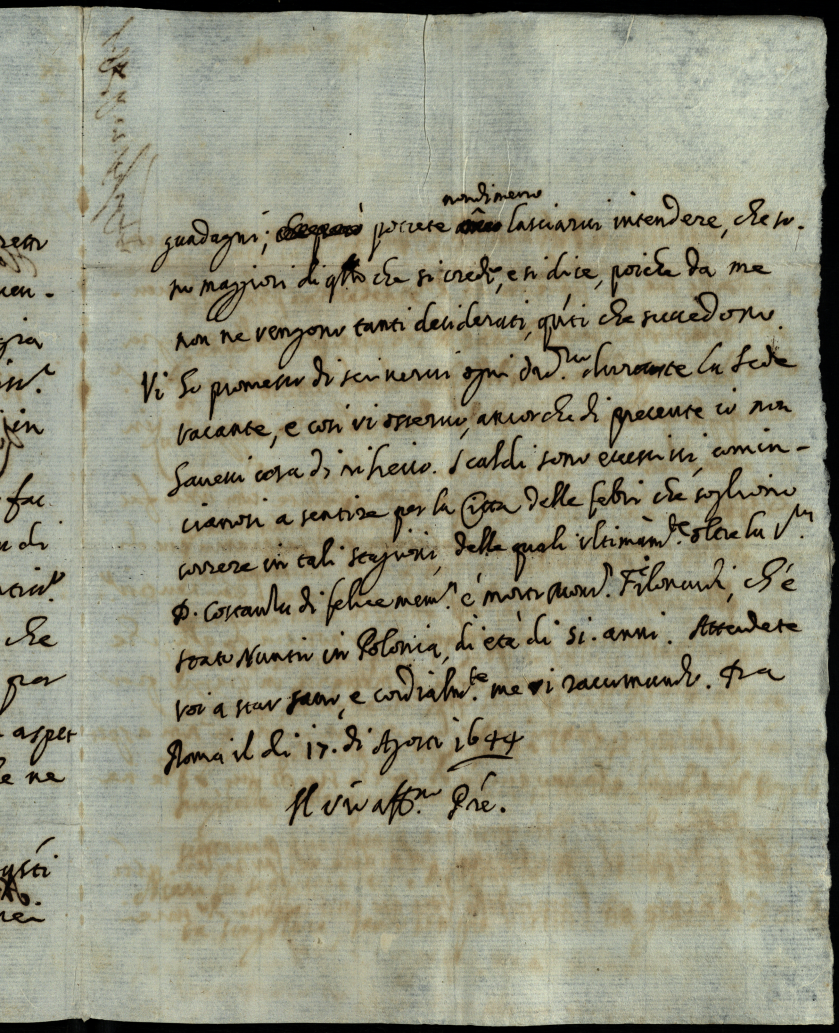 nondimeno
guadagni; potrete lasciarvi intendere, che so-
no maggiori di q.llo che si crede, e si dice, poiche da me
non ne vengono tanti desiderati, q.nti che succedono.
Vi ho promesso di scrivervi ogni ord.rio durante la sede
vacante, e così vi osservo, ancorche di presente io non
havessi cosa di rilievo. I caldi sono eccessivi, comin-
cianosi a sentire per la Città delle febri che sogliono
correre in tali stagioni, delle quali ultimam.te oltre la
D. Costanza di felice mem.a è morto Mons.r Filonardi, ch'è
stato Nuntio in Polonia, di età di 51. anni. Attendete
voi a star sano, e cordialm.te me vi racomando. Da
Roma il dì 17. di Agosto 1644
Il vro aff.mo Pre.
ren
uen-
gia
in
fac
di
che
per
aspet
ne